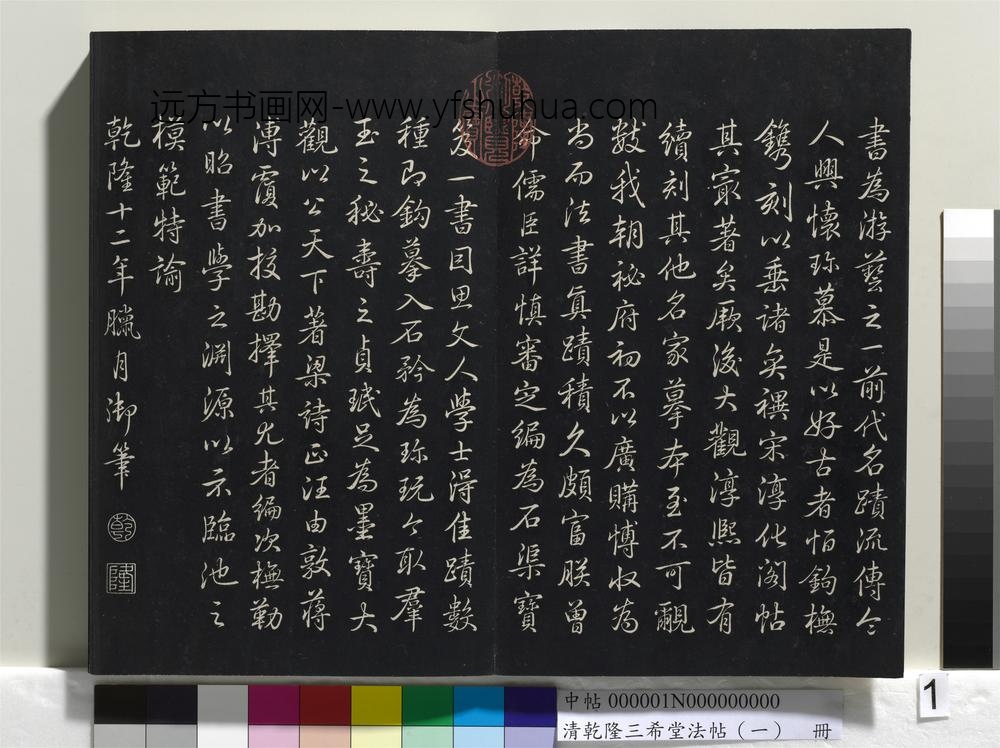 書為游藝之一前代名蹟流傳令
人興懷珎慕是以好古者恒鈎橅
鐫刻以垂諸奕禩宋淳化閣帖
其冣著矣厥後大觀淳熙皆有
續刻其他名家摹本至不可覼
數我朝祕府初不以廣購博收為
尚而法書真蹟積久頗富朕曾
命儒臣詳慎審定編為石渠寶
笈一書因思文人學士得佳蹟數
種即鈎摹入石矜為珎玩今取羣
玉之秘壽之貞珉足為墨寶大
觀以公天下著梁詩正汪由敦蔣
溥覆加挍勘擇其尤者編次橅勒
以昭書學之淵源以示臨池之
模範特諭
乾隆十二年臘月御筆
乾
隆
远方书画网-www.yfshuhua.com
中帖 000001N000000000
清乾隆三希堂法帖（一） 冊
1